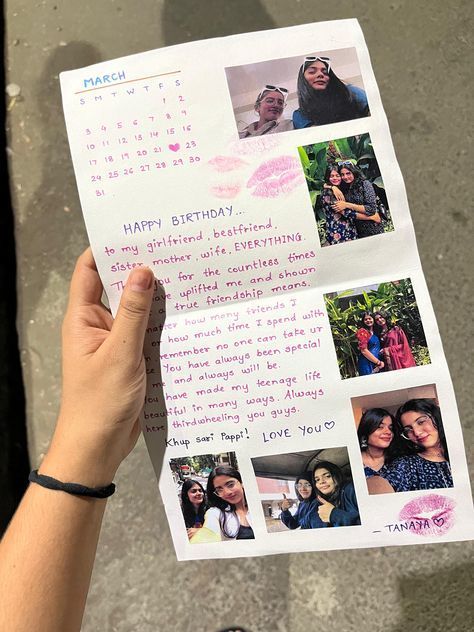 MARCH
S M T W T F S
1 2
3 4 5 6 7 8 9
10 11 12 13 14 15 16
17 18 19 20 21 ♥ 23
24 25 26 27 28 29 30
31
HAPPY BIRTHDAY...
to my girlfriend, bestfriend,
sister, mother, wife, EVERYTHING.
you for the countless times
uplifted me and shown
a true friendship means.
how many friends I
or how much time I spend with
remember no one can take ur
You have always been special
me and always will be.
You have made my teenage life
beautiful in many ways. Always
here thirdwheeling you guys.
Khup sari Pappi! LOVE YOU♡
— TANAYA ♡